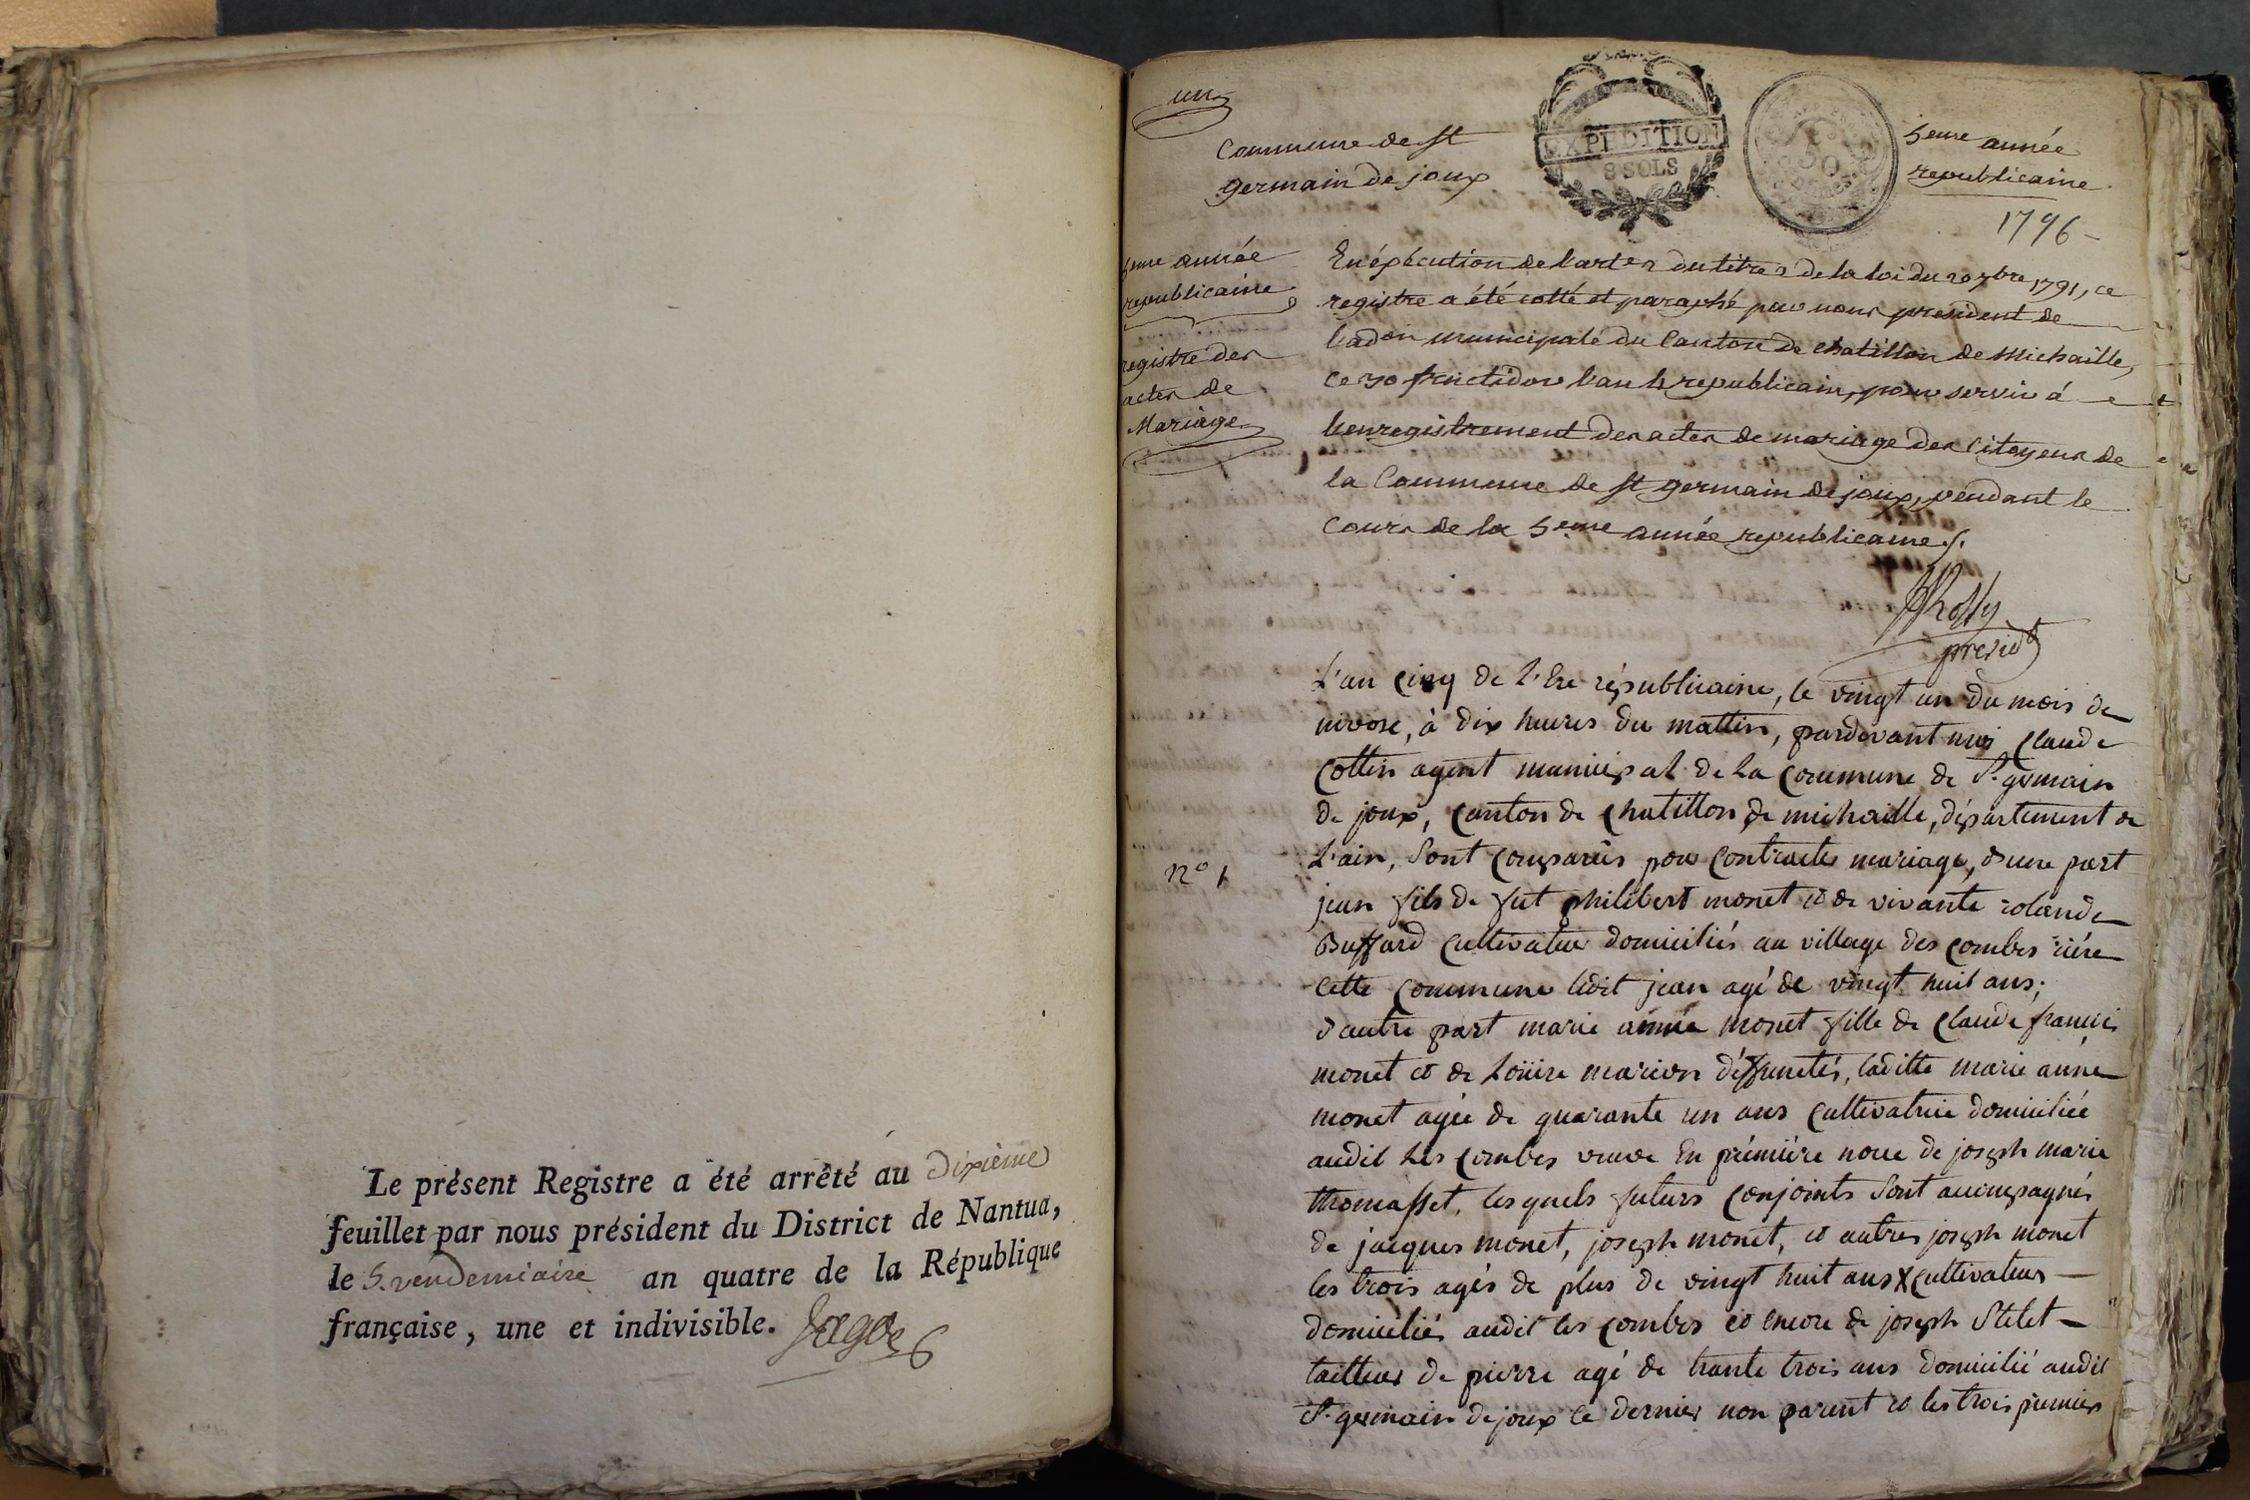 Le présent Registre a été arrêté au dixième
feuillet par nous président du District de Nantua,
le 5. vendemiaire an quatre de la République
française, une et indivisible. Jagot
un
Commune de St
germain de joux
EXPEDITION
8 SOLS
5eme année
republicaine
1796
5eme année
republicaine
registre des
actes de
Mariage
En éxécution de l'art 2 du titre 2 de la loi du 20 7bre 1791, ce
registre a été cotté et paraphé par nous president de
l'adon municipale du Canton de chatillon de Michaille,
ce 30 fructidor l'an 4 republicain, pour servir à
l'enregistrement des actes de mariage des Citoyens de
la Commune de St germain de joux, pendant le
Cours de la 5eme année republicaine /.
presidt
L'an Cinq de L'Ere républicaine, le vingt un du mois de
nivose, à dix heures du mattin, pardevant moi Claude
Cottin agent municipal de La Commune de St. germain
de joux, Canton de Chatillon de michaille, département de
L'ain, Sont Comparus pour Contracter mariage, d'une part
jean fils de fut philibert monet et de vivante rolande
Buffard Cultivateur domiciliés au village des Combes riére
Cette Commune ledit jean agé de vingt huit ans;
d'autre part marie année monet fille de Claude francois
monet et de Loüise marion déffunctés, laditte marie anné
monet agée de quarante un ans Cultivatrice domiciliée
audit Les Combes veuve En prémiére noce de joseph marie
thomasset, lesquels futurs Conjoints Sont accompagnés
de jacques monet, joseph monet, et autres joseph monet
les trois agés de plus de vingt huit ans X Cultivateurs
domiciliés audit les Combes et encore de joseph Stelet
tailleur de pierre agé de trante trois ans domicilié audit
St. germain dejoux le dernier non parent et les trois premiers
n° 1